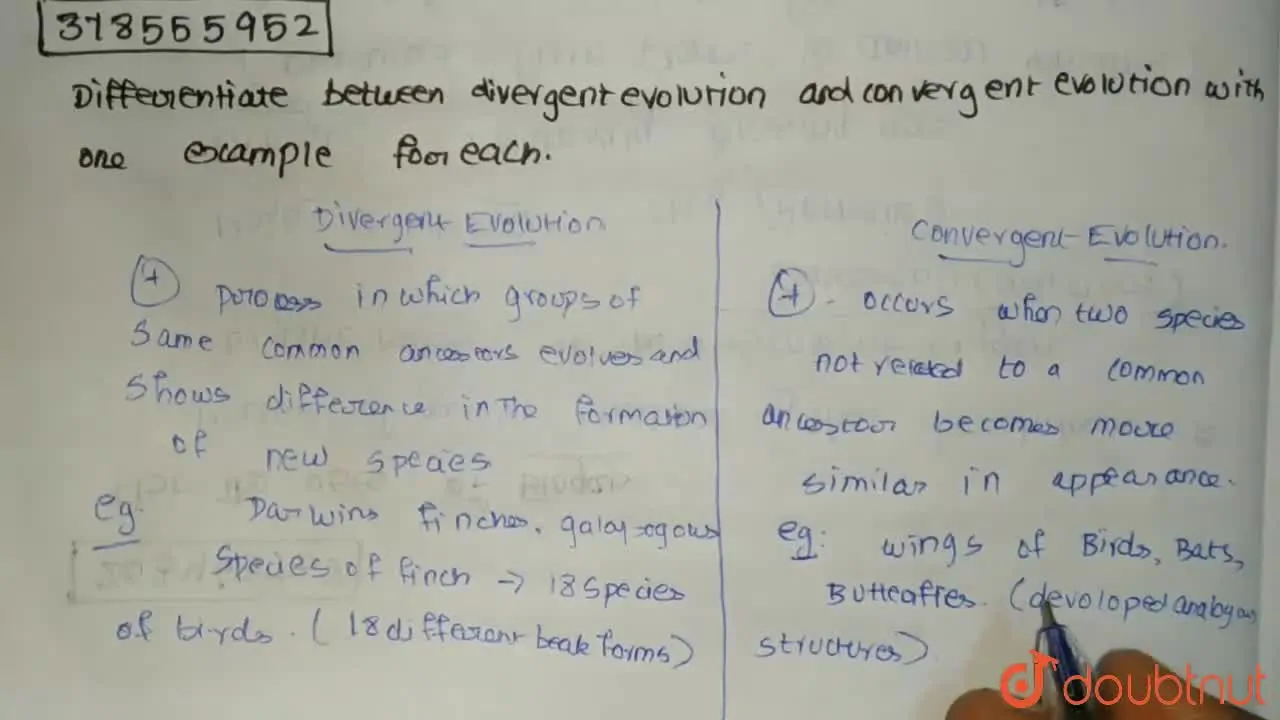 378555952
Differentiate between divergent evolution and convergent evolution with
one example for each.
Divergent Evolution
+ process in which groups of
same common ancestors evolves and
shows difference in the formation
of new species
eg: Darwins finches,
Species of finch → 18 species
of birds. (18 different beak forms)
Convergent Evolution.
+ - occurs when two species
not related to a common
ancestor becomes more
similar in appearance.
eg: wings of Birds, Bats,
Butterflies. (developed analogous
structures)
doubtnut